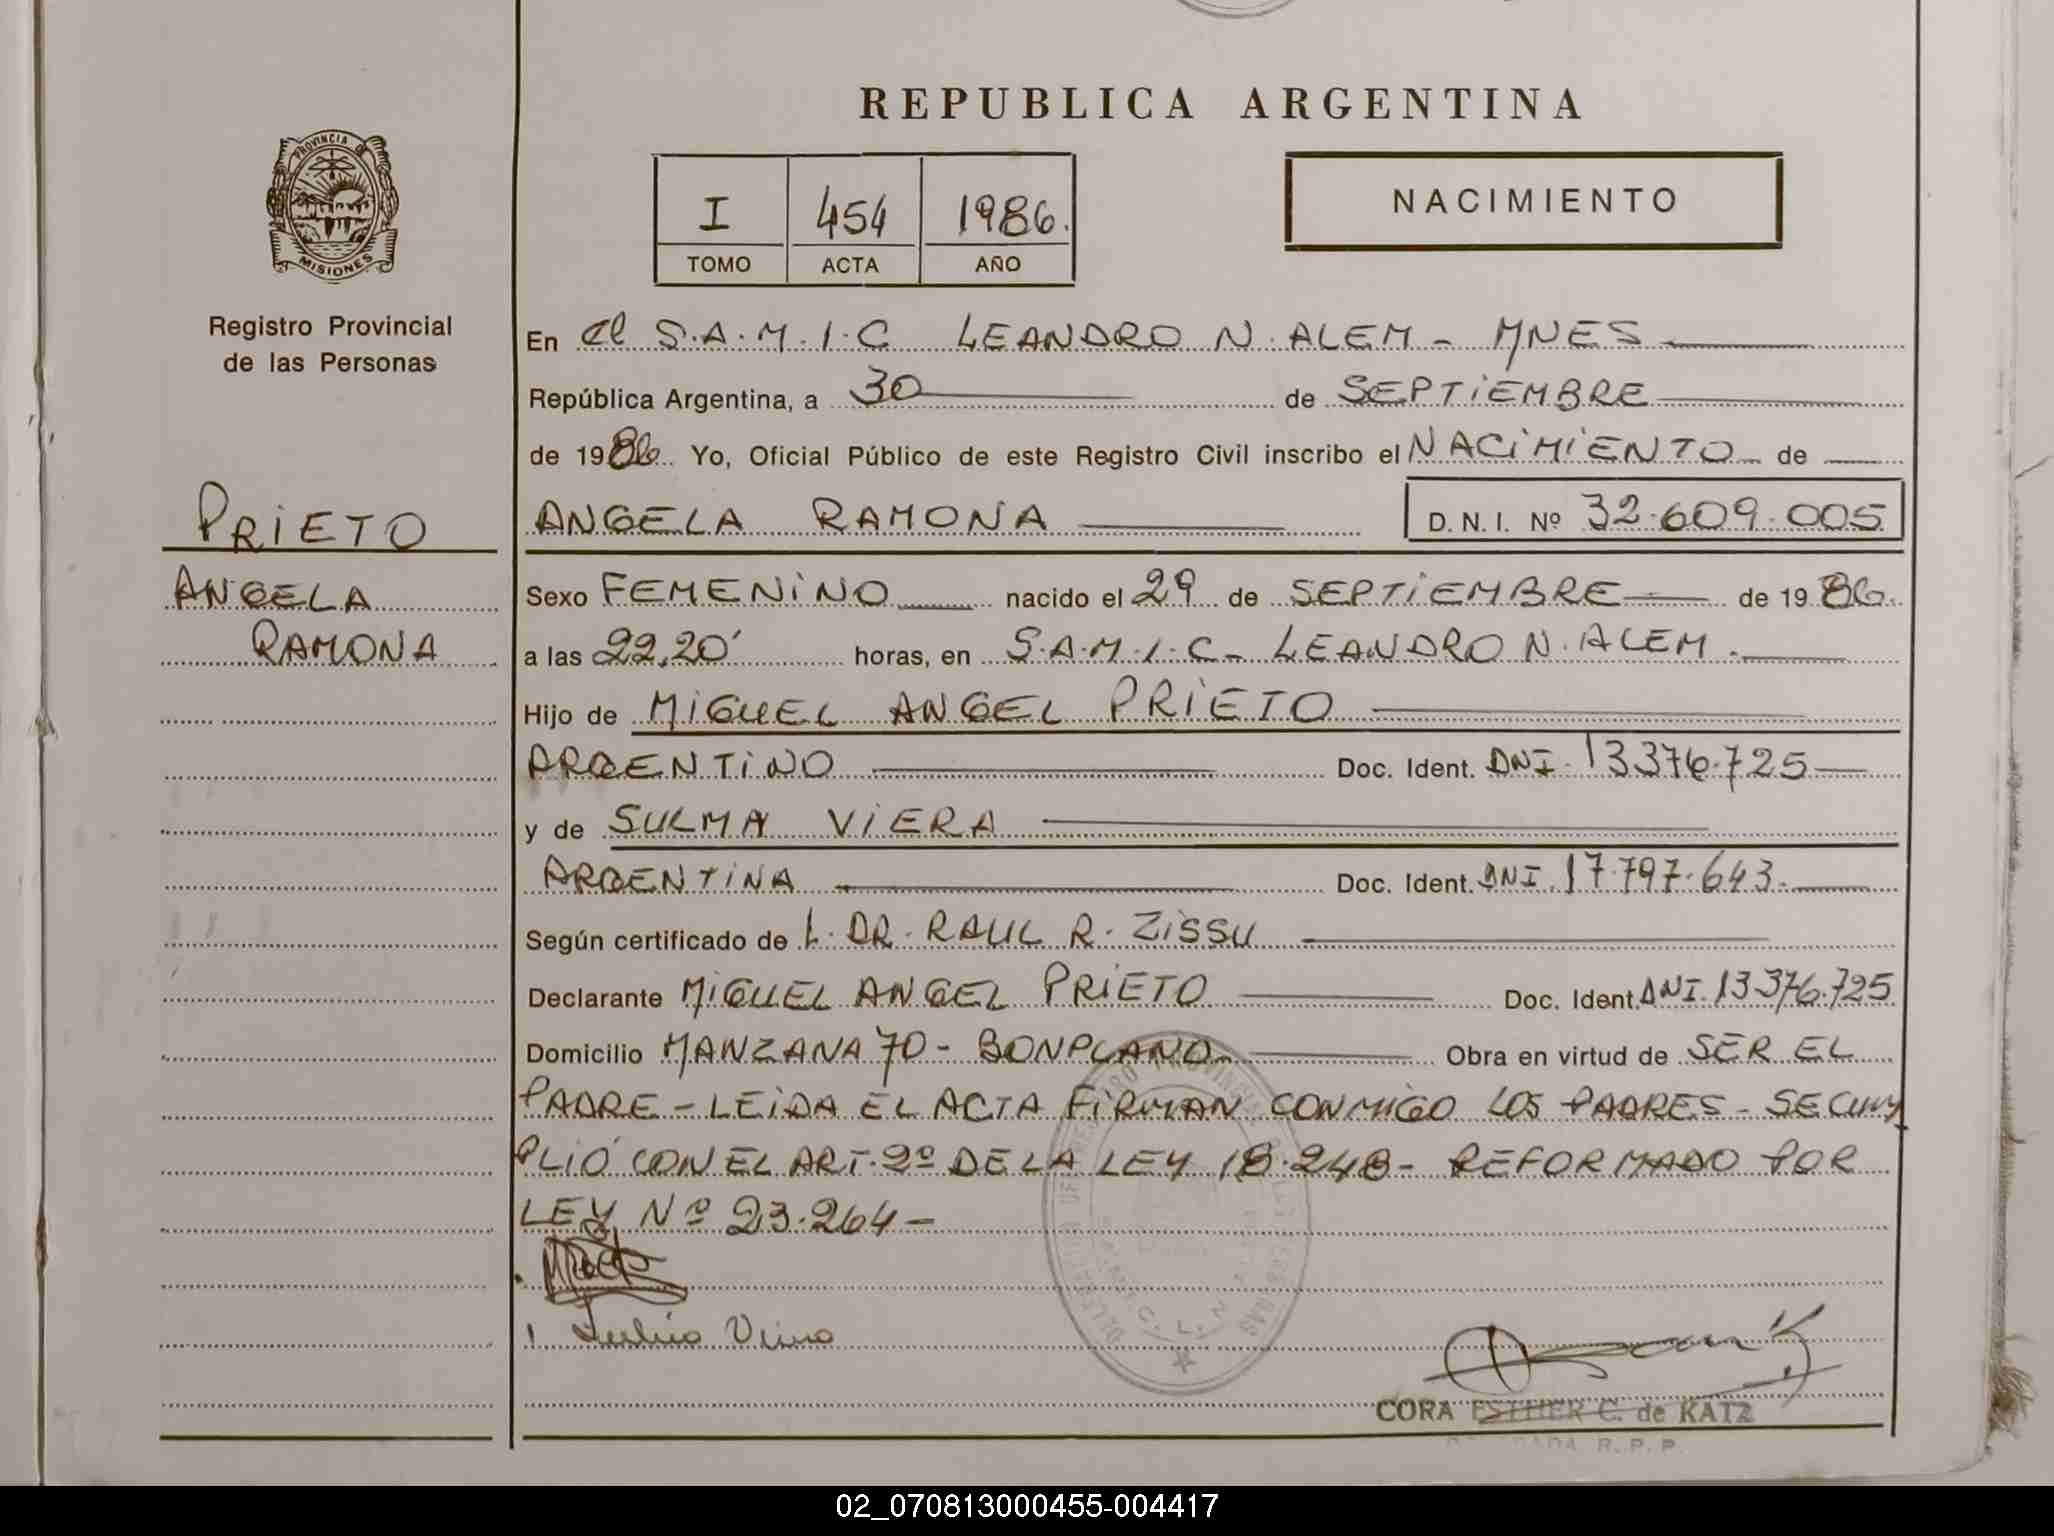 REPUBLICA ARGENTINA
PROVINCIA DE
MISIONES
Registro Provincial
de las Personas
I 454 1986.
TOMO ACTA AÑO
NACIMIENTO
En el S.A.M.I.C LEANDRO N. ALEM - MNES
República Argentina, a 30 de SEPTIEMBRE
de 1986 Yo, Oficial Público de este Registro Civil inscribo el NACIMIENTO de
PRIETO
ANGELA RAMONA D.N.I. Nº 32.609.005
ANGELA
RAMONA
Sexo FEMENINO nacido el 29 de SEPTIEMBRE de 1986.
a las 22,20' horas, en S.A.M.I.C- LEANDRO N. ALEM.
Hijo de MIGUEL ANGEL PRIETO
ARGENTINO Doc. Ident. DNI. 13.376.725
y de SULMA VIERA
ARGENTINA Doc. Ident. DNI. 17.797.643.
Según certificado de L. DR. RAUL R. ZISSU
Declarante MIGUEL ANGEL PRIETO Doc. Ident. DNI. 13.376.725
Domicilio MANZANA 70 - BONPLAND Obra en virtud de SER EL
PADRE - LEIDA EL ACTA FIRMAN CONMIGO LOS PADRES - SE CUM
PLIÓ CON EL ART. 2º DE LA LEY 18.248 - REFORMADO POR
LEY Nº 23.264 -
CORA ESTHER C. de KATZ
R. P. P.
02_070813000455-004417